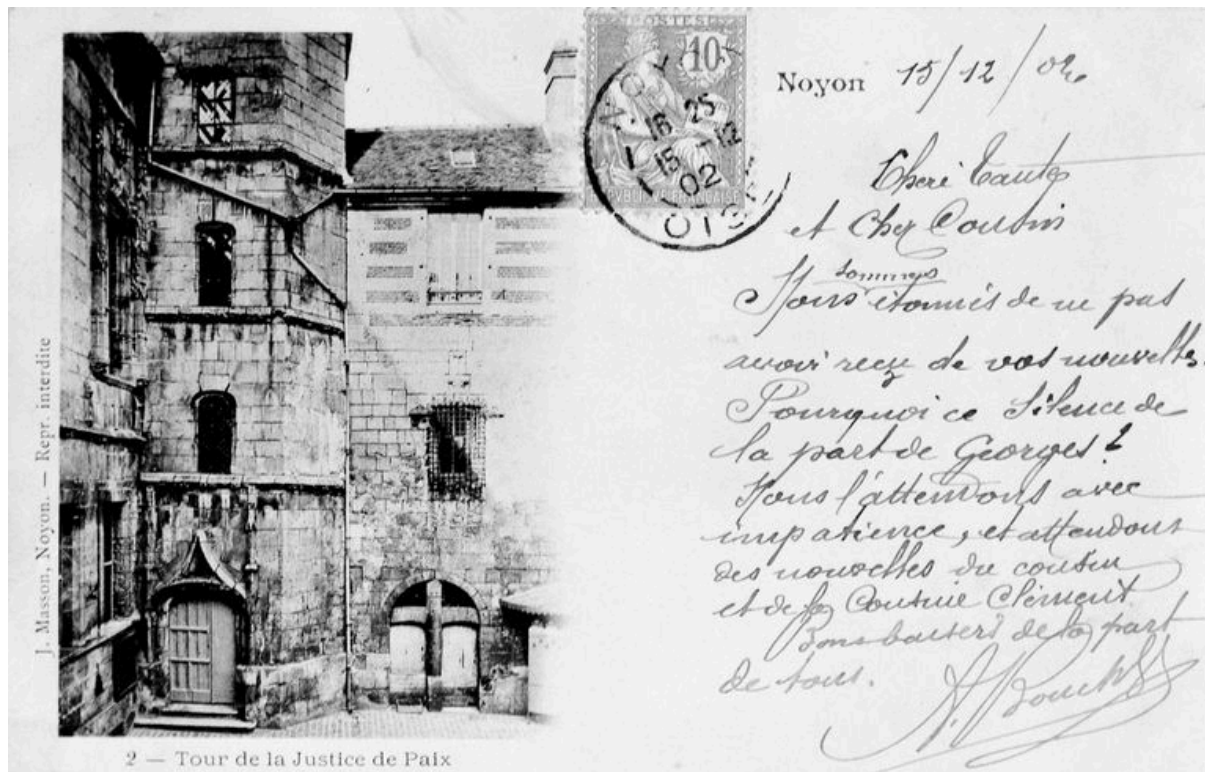 J. Masson, Noyon. — Repr. interdite
POSTES
10
RÉPUBLIQUE FRANÇAISE
NOYON
16 25
15 - 12
02
OISE
Noyon 15/12/02
Cheri Tante
et Cher Cousin
sommes
Nous étonnés de ne pas
avoir reçu de vos nouvelles.
Pourquoi ce Silence de
la part de Georges?
Nous l'attendons avec
impatience, et attendons
des nouvelles du cousin
et de la Cousine Clément
Bons baisers de la part
de tous.
2 — Tour de la Justice de Paix